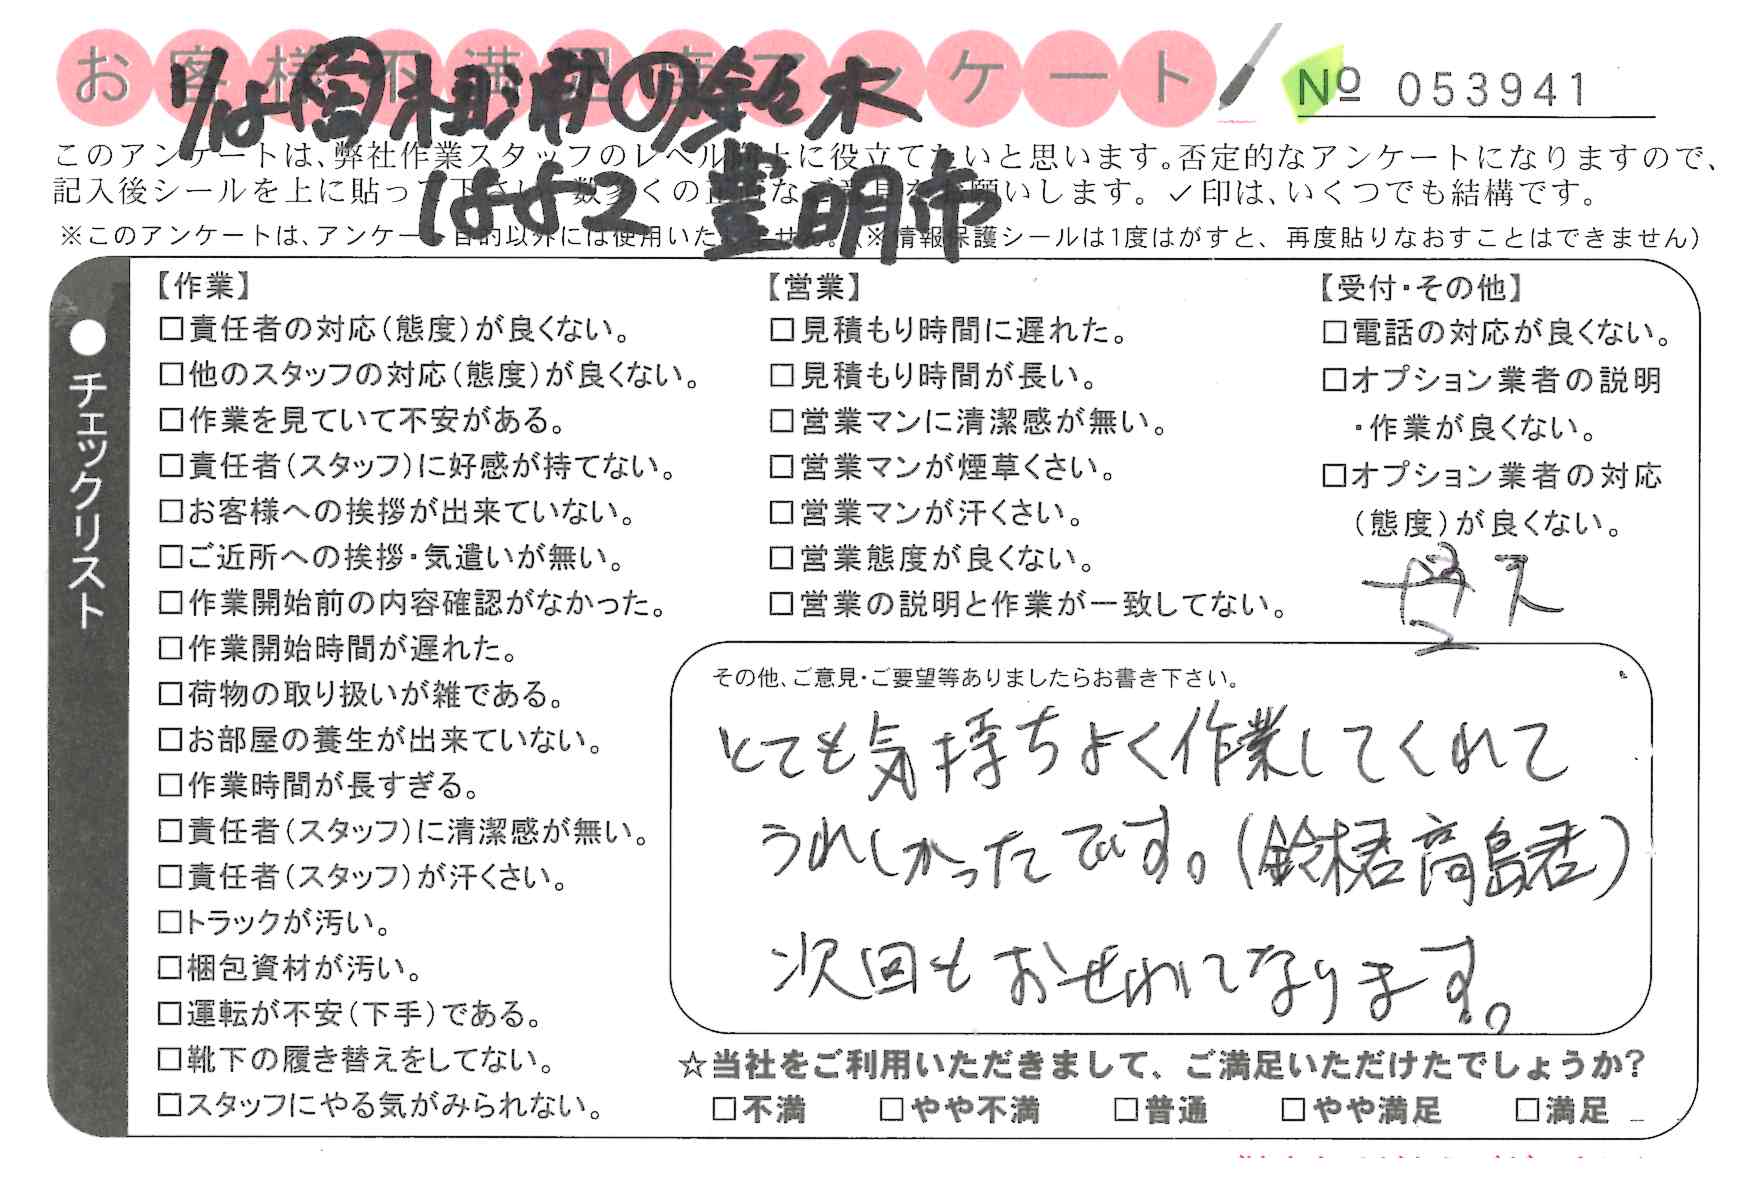 お客様不満足度アンケート
No 053941
鈴木
豊明市
このアンケートは、弊社作業スタッフのレベル向上に役立てたいと思います。否定的なアンケートになりますので、
記入後シールを上に貼って下さい。数多くの正直なご意見をお願いします。✓印は、いくつでも結構です。
※このアンケートは、アンケート目的以外には使用いたしません。(※情報保護シールは1度はがすと、再度貼りなおすことはできません)
●チェックリスト
【作業】
□責任者の対応(態度)が良くない。
□他のスタッフの対応(態度)が良くない。
□作業を見ていて不安がある。
□責任者(スタッフ)に好感が持てない。
□お客様への挨拶が出来ていない。
□ご近所への挨拶・気遣いが無い。
□作業開始前の内容確認がなかった。
□作業開始時間が遅れた。
□荷物の取り扱いが雑である。
□お部屋の養生が出来ていない。
□作業時間が長すぎる。
□責任者(スタッフ)に清潔感が無い。
□責任者(スタッフ)が汗くさい。
□トラックが汚い。
□梱包資材が汚い。
□運転が不安(下手)である。
□靴下の履き替えをしてない。
□スタッフにやる気がみられない。
【営業】
□見積もり時間に遅れた。
□見積もり時間が長い。
□営業マンに清潔感が無い。
□営業マンが煙草くさい。
□営業マンが汗くさい。
□営業態度が良くない。
□営業の説明と作業が一致してない。
【受付・その他】
□電話の対応が良くない。
□オプション業者の説明
・作業が良くない。
□オプション業者の対応
(態度)が良くない。
その他、ご意見・ご要望等ありましたらお書き下さい。
とても気持ちよく作業してくれて
うれしかったです。(鈴木君 高島君)
次回もおせわになります。
☆当社をご利用いただきまして、ご満足いただけたでしょうか?
□不満 □やや不満 □普通 □やや満足 □満足